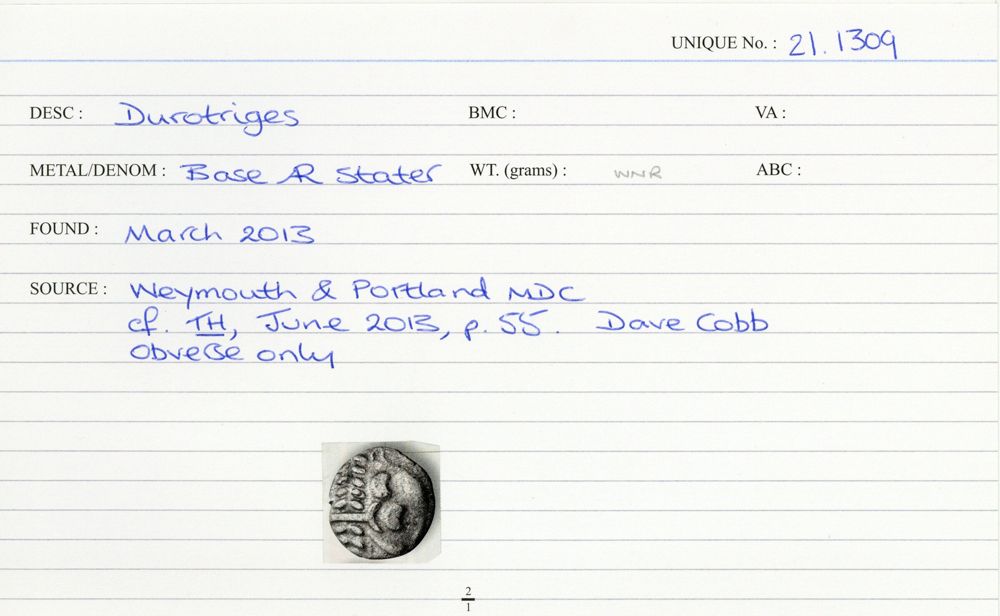 UNIQUE No. : 21.1309
DESC : Durotriges BMC : VA :
METAL/DENOM : Base AR Stater WT. (grams) : WNR ABC :
FOUND : March 2013
SOURCE : Weymouth & Portland MDC
cf. TH, June 2013, p. 55. Dave Cobb
Obverse only
2
1